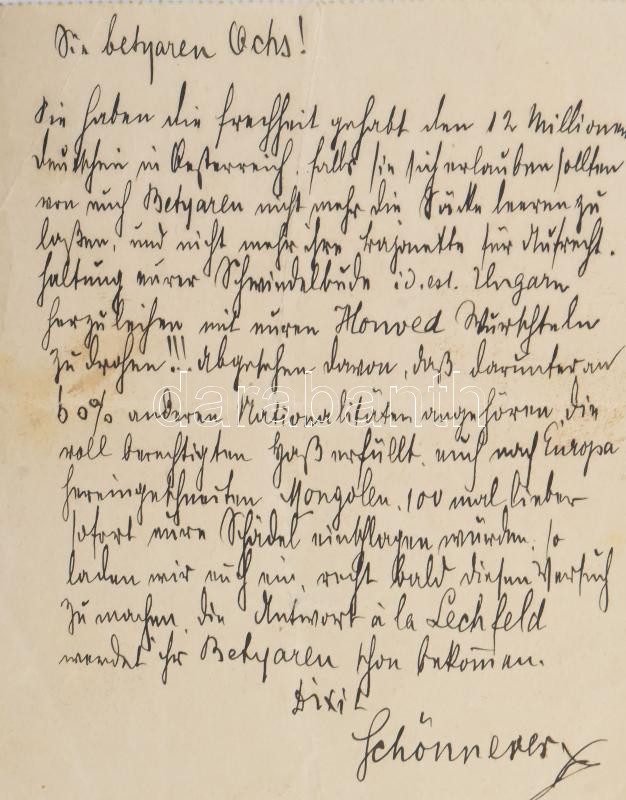 Sie betyaren Ochs!
Sie haben die frechheit gehabt den 12 Millionen
Deutschen in Oesterreich, falls sie sich erlauben sollten
von euch Betyaren nicht mehr die Säcke leeren zu
laßen, und nicht mehr ihre Bajonette für Aufrecht-
haltung eurer Schwindelbude id. est. Ungarn
herzuleihen mit euren Honved Wurschteln
zu drohen!!! abgesehen davon, daß darunter an
60% anderen Nationalitäten angehören, die
voll berechtigten Haß erfüllt, euch nach Europa
hereingeschneiten Mongolen, 100 mal lieber
sofort eure Schädel einschlagen würden, so
laden wir euch ein, recht bald diesen Versuch
zu machen, die Antwort à la Lechfeld
werdet ihr Betyaren schon bekommen.
Dixi
Schönnerer
darabanth